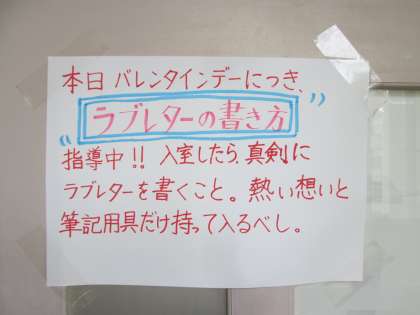 本日 バレンタインデーにつき、
〝ラブレターの書き方〞
指導中!! 入室したら、真剣に
ラブレターを書くこと。熱い想いと
筆記用具だけ持って入るべし。